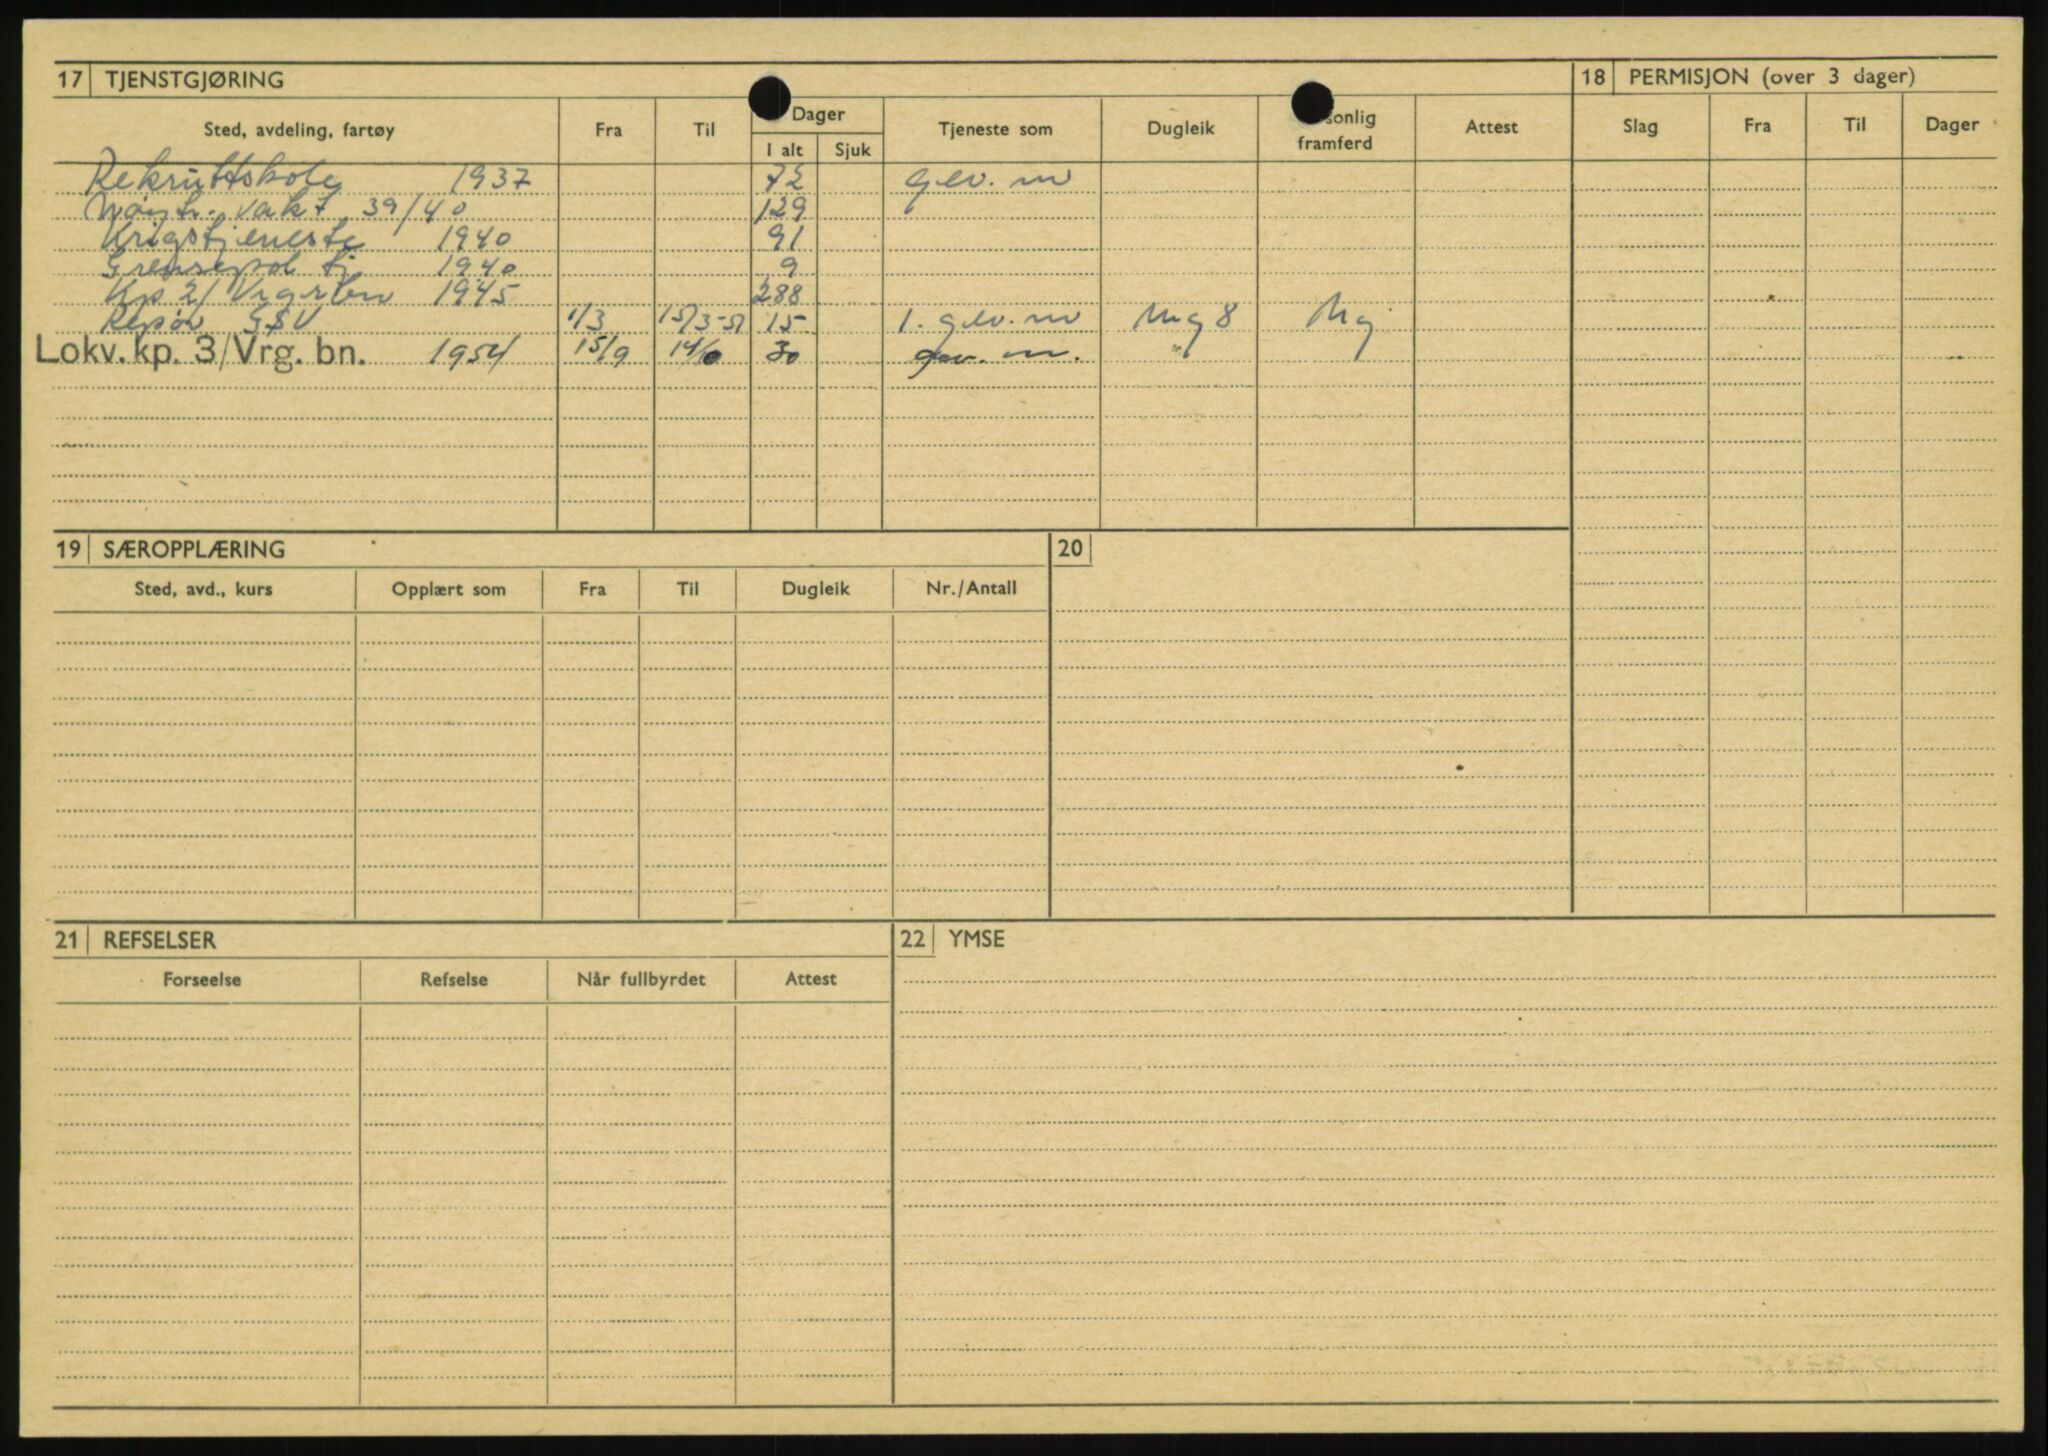 17 TJENSTGJØRING
18 PERMISJON (over 3 dager)
Sted, avdeling, fartøy Fra Til Dager Tjeneste som Dugleik sonlig framferd Attest
I alt Sjuk
Slag Fra Til Dager
Rekruttskole 1937 72 gev. m
Nøytr. vakt 39/40 129
Krigstjeneste 1940 91
Grensepol tj 1940 9
Kp 2/Vrgrbn 1945 288
Repøv GSV 1/3 15/3-51 15 1. gev. m Mg 8 Mg
Lokv. kp. 3/Vrg. bn. 1954 15/9 14/10 30 gev. m. "
19 SÆROPPLÆRING
20
Sted, avd., kurs Opplært som Fra Til Dugleik Nr./Antall
21 REFSELSER
22 YMSE
Forseelse Refselse Når fullbyrdet Attest